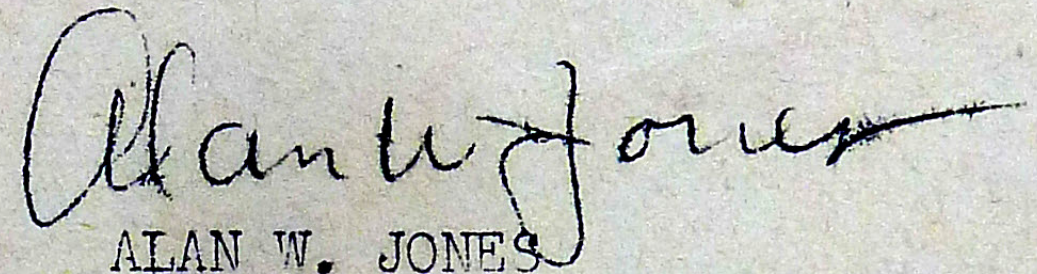 Alan W. Jones
ALAN W. JONES